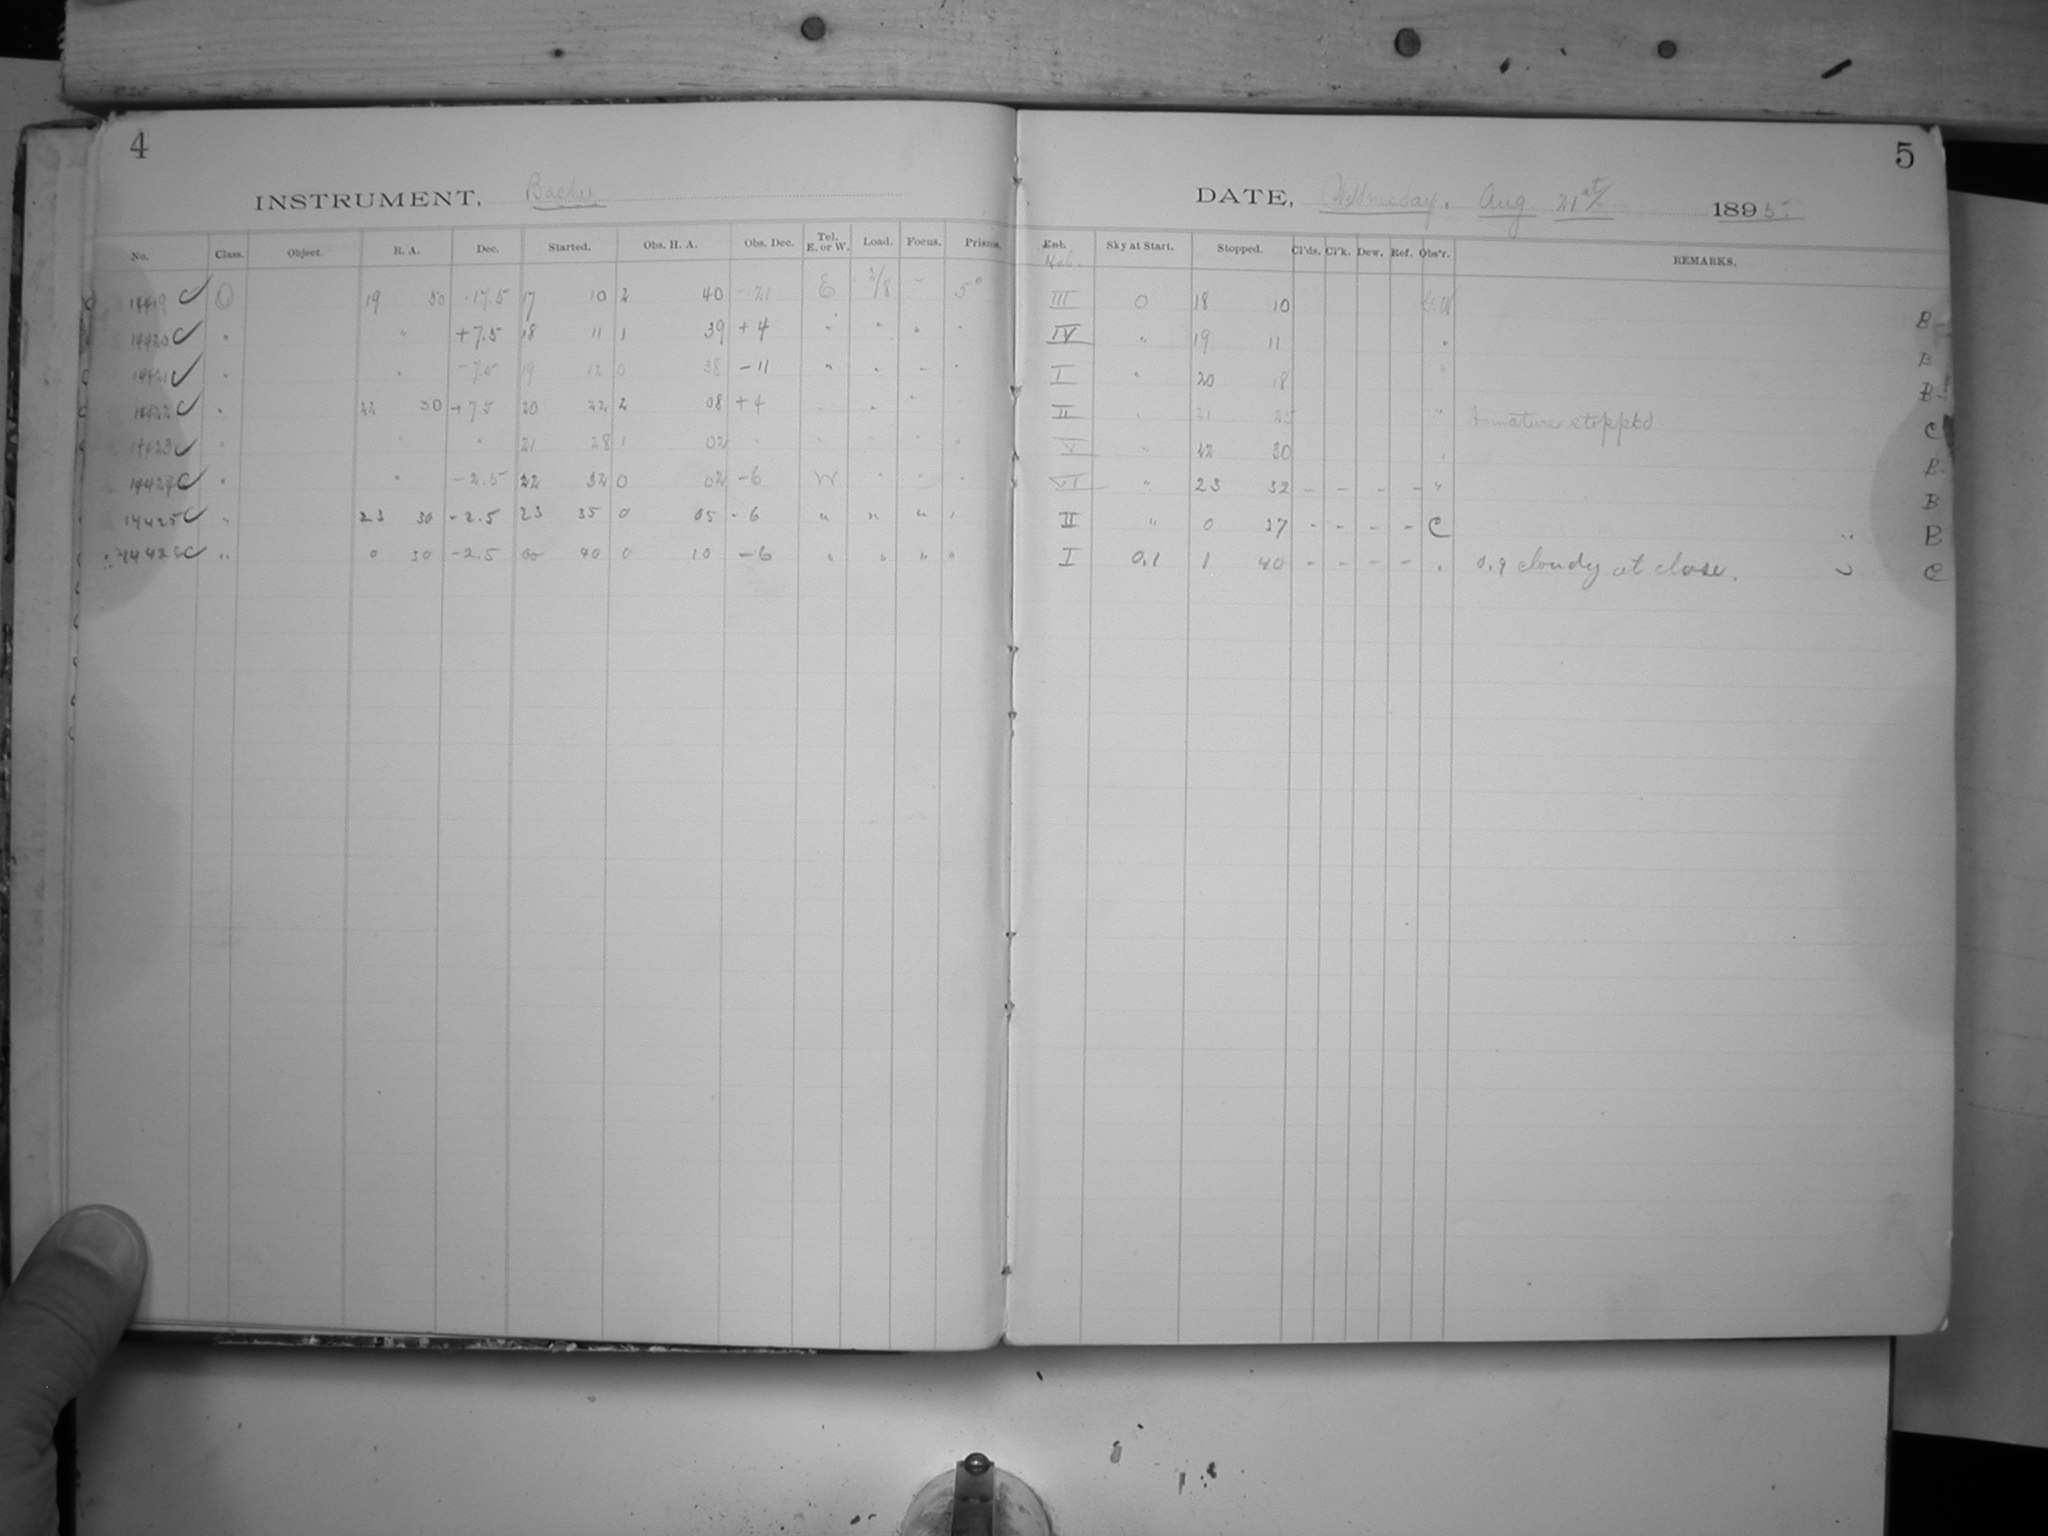 4
INSTRUMENT, Bache
No. Class. Object. R. A. Dec. Started. Obs. H. A. Obs. Dec. Tel. E. or W. Load. Focus. Prisms.
14419 O 19 50 -17.5 17 10 2 40 -21 E 2/8 - 5°
14420 " " +7.5 18 11 1 39 +4 " " " "
14421 " " -7.5 19 12 0 38 -11 " " - "
14422 " 22 30 +7.5 20 22 2 08 +4 " " "
14423 " " " 21 28 1 02 " " " " "
14424 " " -2.5 22 32 0 02 -6 W " " "
14425 " 23 30 -2.5 23 35 0 05 -6 " " " "
14426 " 0 30 -2.5 00 40 0 10 -6 " " " "
5
DATE, Wednesday, Aug. 21st, 1895.
Sky at Start. Stopped. Cl'ds. Cl'k. Dew. Ref. Obs'r. REMARKS.
III 0 18 10 B
IV " 19 11 " B
I " 20 18 " B
II " 21 25 " Armature stopped C
V " 22 30 " B
VI " 23 32 - - - - " B
II " 0 37 - - - - C B
I 0.1 1 40 - - - - " 0.9 cloudy at close. C